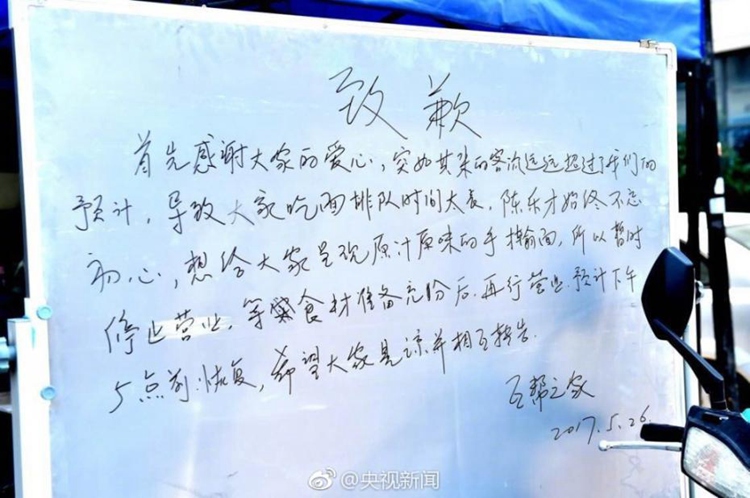 致歉
首先感谢大家的爱心，突如其来的客流远远超过了我们的
预计，导致大家吃面排队时间太长，陈乐才始终不忘
初心，想给大家呈现原汁原味的手擀面，所以暂时
停止营业，等食材准备充份后，再行营业，预计下午
5点前恢复，希望大家见谅并相互转告。
互帮之家
2017.5.26
@央视新闻